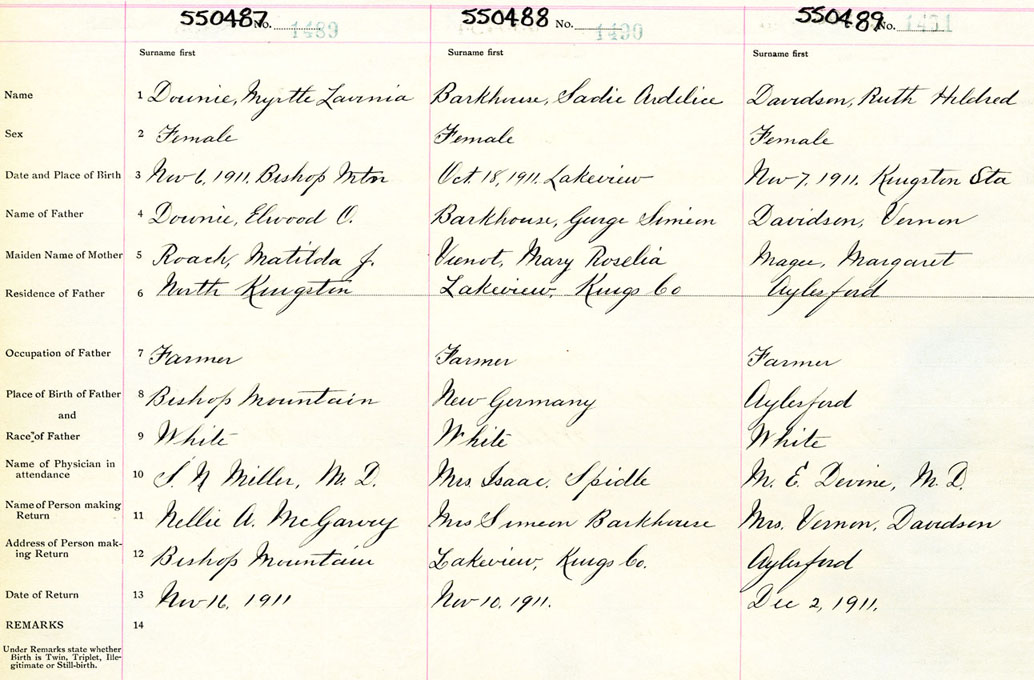 550487 No. 1489 550488 No. 1490 550489 No. 1491
Surname first Surname first Surname first
Name 1 Downie, Myrtle Lavinia Barkhouse, Sadie Ardelice Davidson, Ruth Hildred
Sex 2 Female Female Female
Date and Place of Birth 3 Nov 6, 1911. Bishop Mtn Oct. 18, 1911. Lakeview Nov 7. 1911. Kingston Sta
Name of Father 4 Downie, Elwood O. Barkhouse, George Simeon Davidson, Vernon
Maiden Name of Mother 5 Roach, Matilda J. Vienot, Mary Roselia Magee, Margaret
Residence of Father 6 North Kingston Lakeview, Kings Co Aylesford
Occupation of Father 7 Farmer Farmer Farmer
Place of Birth of Father 8 Bishop Mountain New Germany Aylesford
and
Race of Father 9 White White White
Name of Physician in
attendance 10 S. N Miller, M. D. Mrs. Isaac. Spidle M. E. Devine, M. D.
Name of Person making
Return 11 Nellie A. McGarvey Mrs Simeon Barkhouse Mrs. Vernon, Davidson
Address of Person mak-
ing Return 12 Bishop Mountain Lakeview, Kings Co. Aylesford
Date of Return 13 Nov 16, 1911 Nov 10. 1911. Dec 2, 1911.
REMARKS 14
Under Remarks state whether
Birth is Twin, Triplet, Ille-
gitimate or Still-birth.